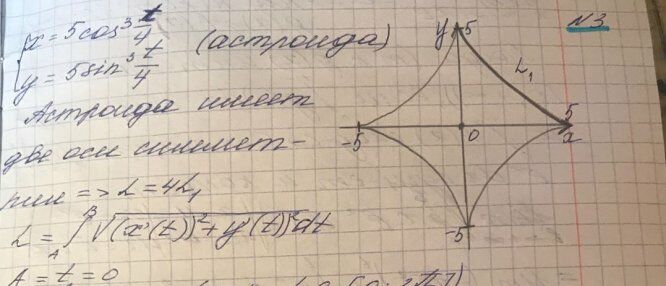 №3
{ x = 5cos³ t/4
y = 5sin³ t/4
(астроида)
Астроида имеет
две оси симмет-
рии => L = 4L₁
L = ∫ᴬᴮ √(x'(t))² + y'(t))² dt
A = t = 0
y 5
L₁
-5 0 5
x
-5